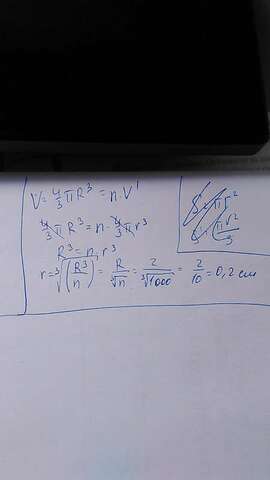 V = 4/3 πR³ = n·V'
4/3 π R³ = n · 4/3 π r³
R³ = n · r³
r = ³√(R³/n) = R/³√n = 2/³√1000 = 2/10 = 0,2 см